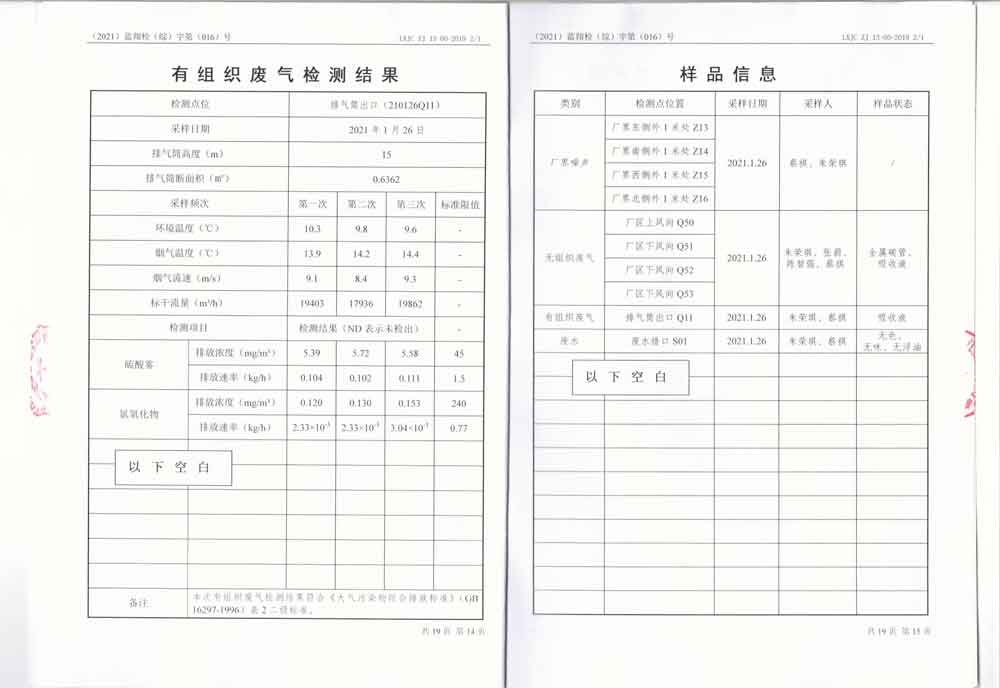 （2021）蓝翔检（综）字第（016）号
LXJC ZJ 15-00-2019 2/1
有组织废气检测结果
检测点位 排气筒出口（210126Q11）
采样日期 2021 年 1 月 26 日
排气筒高度（m） 15
排气筒断面积（m²） 0.6362
采样频次 第一次 第二次 第三次 标准限值
环境温度（℃） 10.3 9.8 9.6 -
烟气温度（℃） 13.9 14.2 14.4 -
烟气流速（m/s） 9.1 8.4 9.3 -
标干流量（m³/h） 19403 17936 19862 -
检测项目 检测结果（ND 表示未检出） -
硫酸雾
排放浓度（mg/m³） 5.39 5.72 5.58 45
排放速率（kg/h） 0.104 0.102 0.111 1.5
氮氧化物
排放浓度（mg/m³） 0.120 0.130 0.153 240
排放速率（kg/h） 2.33×10⁻³ 2.33×10⁻³ 3.04×10⁻³ 0.77
以下空白
备注
本次有组织废气检测结果符合《大气污染物综合排放标准》（GB
16297-1996）表 2 二级标准。
共 19 页 第 14 页
（2021）蓝翔检（综）字第（016）号
LXJC ZJ 15-00-2019 2/1
样品信息
类别 检测点位置 采样日期 采样人 样品状态
厂界噪声
厂界东侧外 1 米处 Z13
厂界南侧外 1 米处 Z14
厂界西侧外 1 米处 Z15
厂界北侧外 1 米处 Z16
2021.1.26
蔡祺、朱荣祺
/
无组织废气
厂区上风向 Q50
厂区下风向 Q51
厂区下风向 Q52
厂区下风向 Q53
2021.1.26
朱荣祺、张蔚、
陈智强、蔡祺
金属碳管、
吸收液
有组织废气 排气筒出口 Q11 2021.1.26 朱荣祺、蔡祺 吸收液
废水 废水排口 S01 2021.1.26 朱荣祺、蔡祺
无色、
无味、无浮油
以下空白
共 19 页 第 15 页